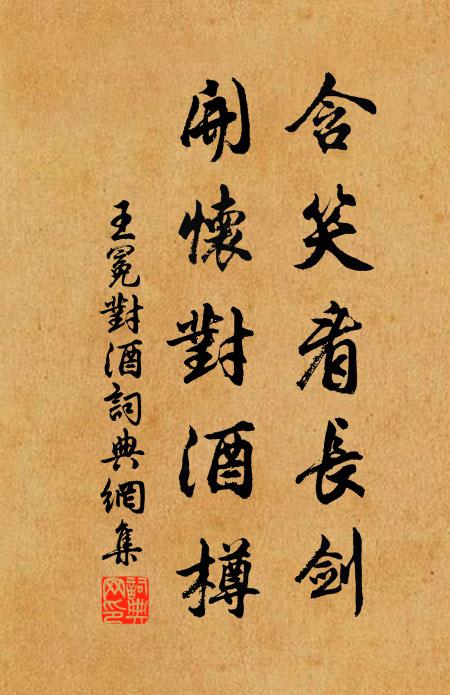 含笑看長劍
開懷對酒樽
王冕對酒詞典網集
詞典网印